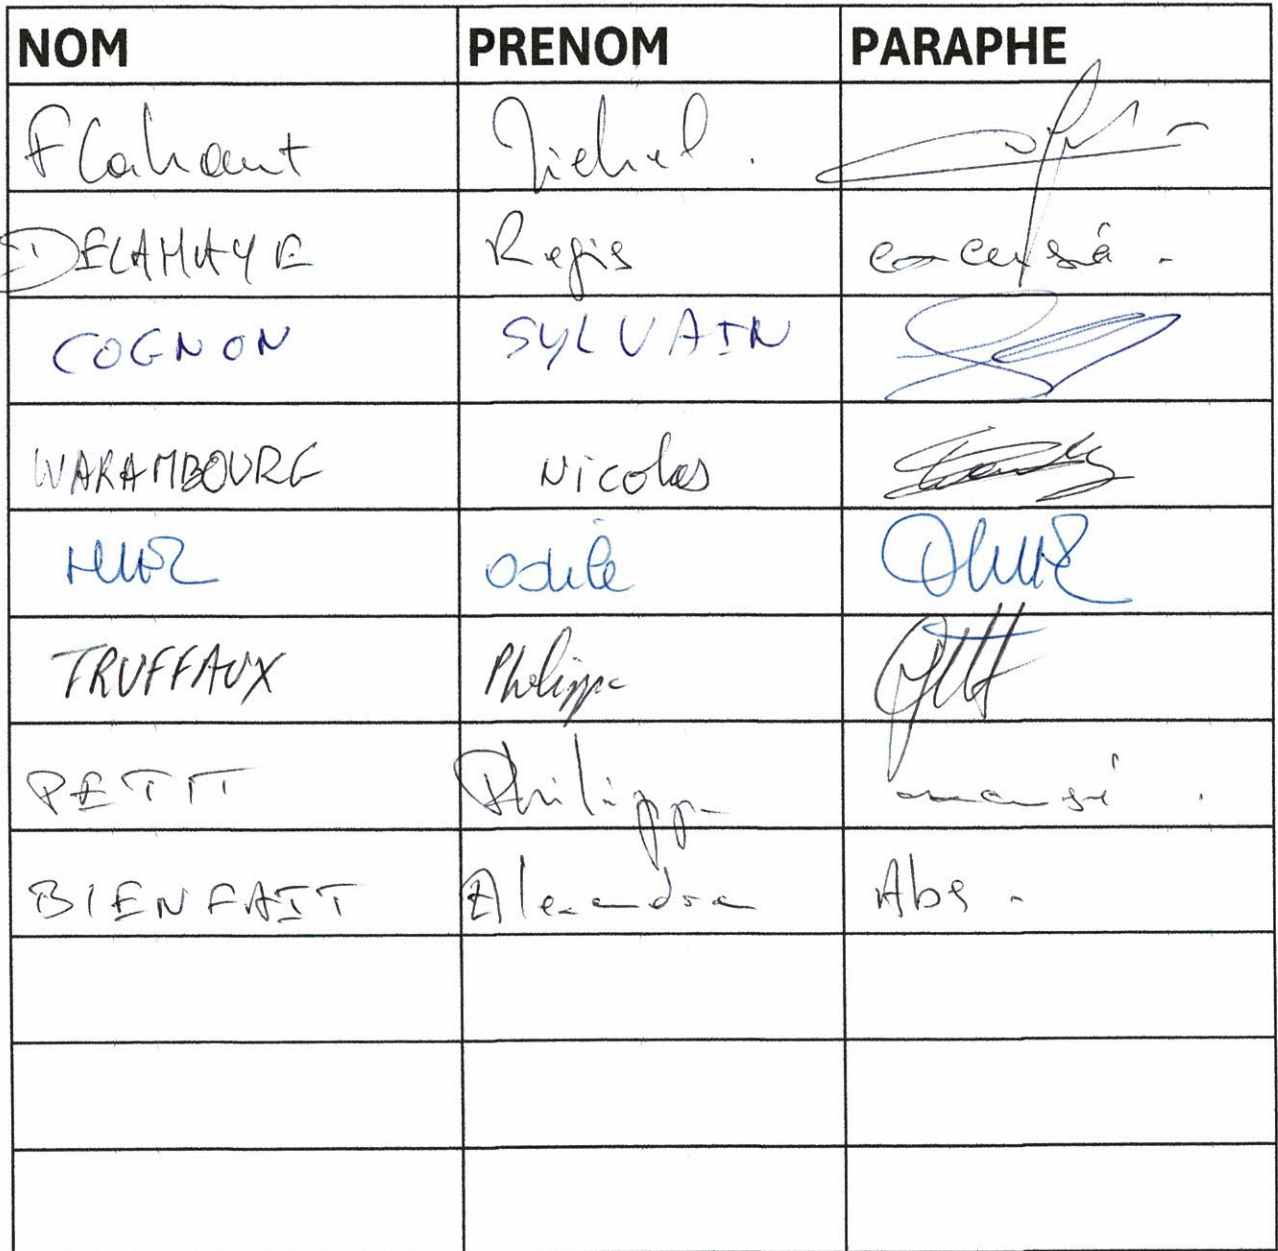 NOM PRENOM PARAPHE
Flahaut Michel.
DELAHAYE Regis excusé.
COGNON SYLVAIN
WARAMBOURG Nicolas
Odile
TRUFFAUX Philippe
PETIT Philippe excusé.
BIENFAIT Alexandra Abs.